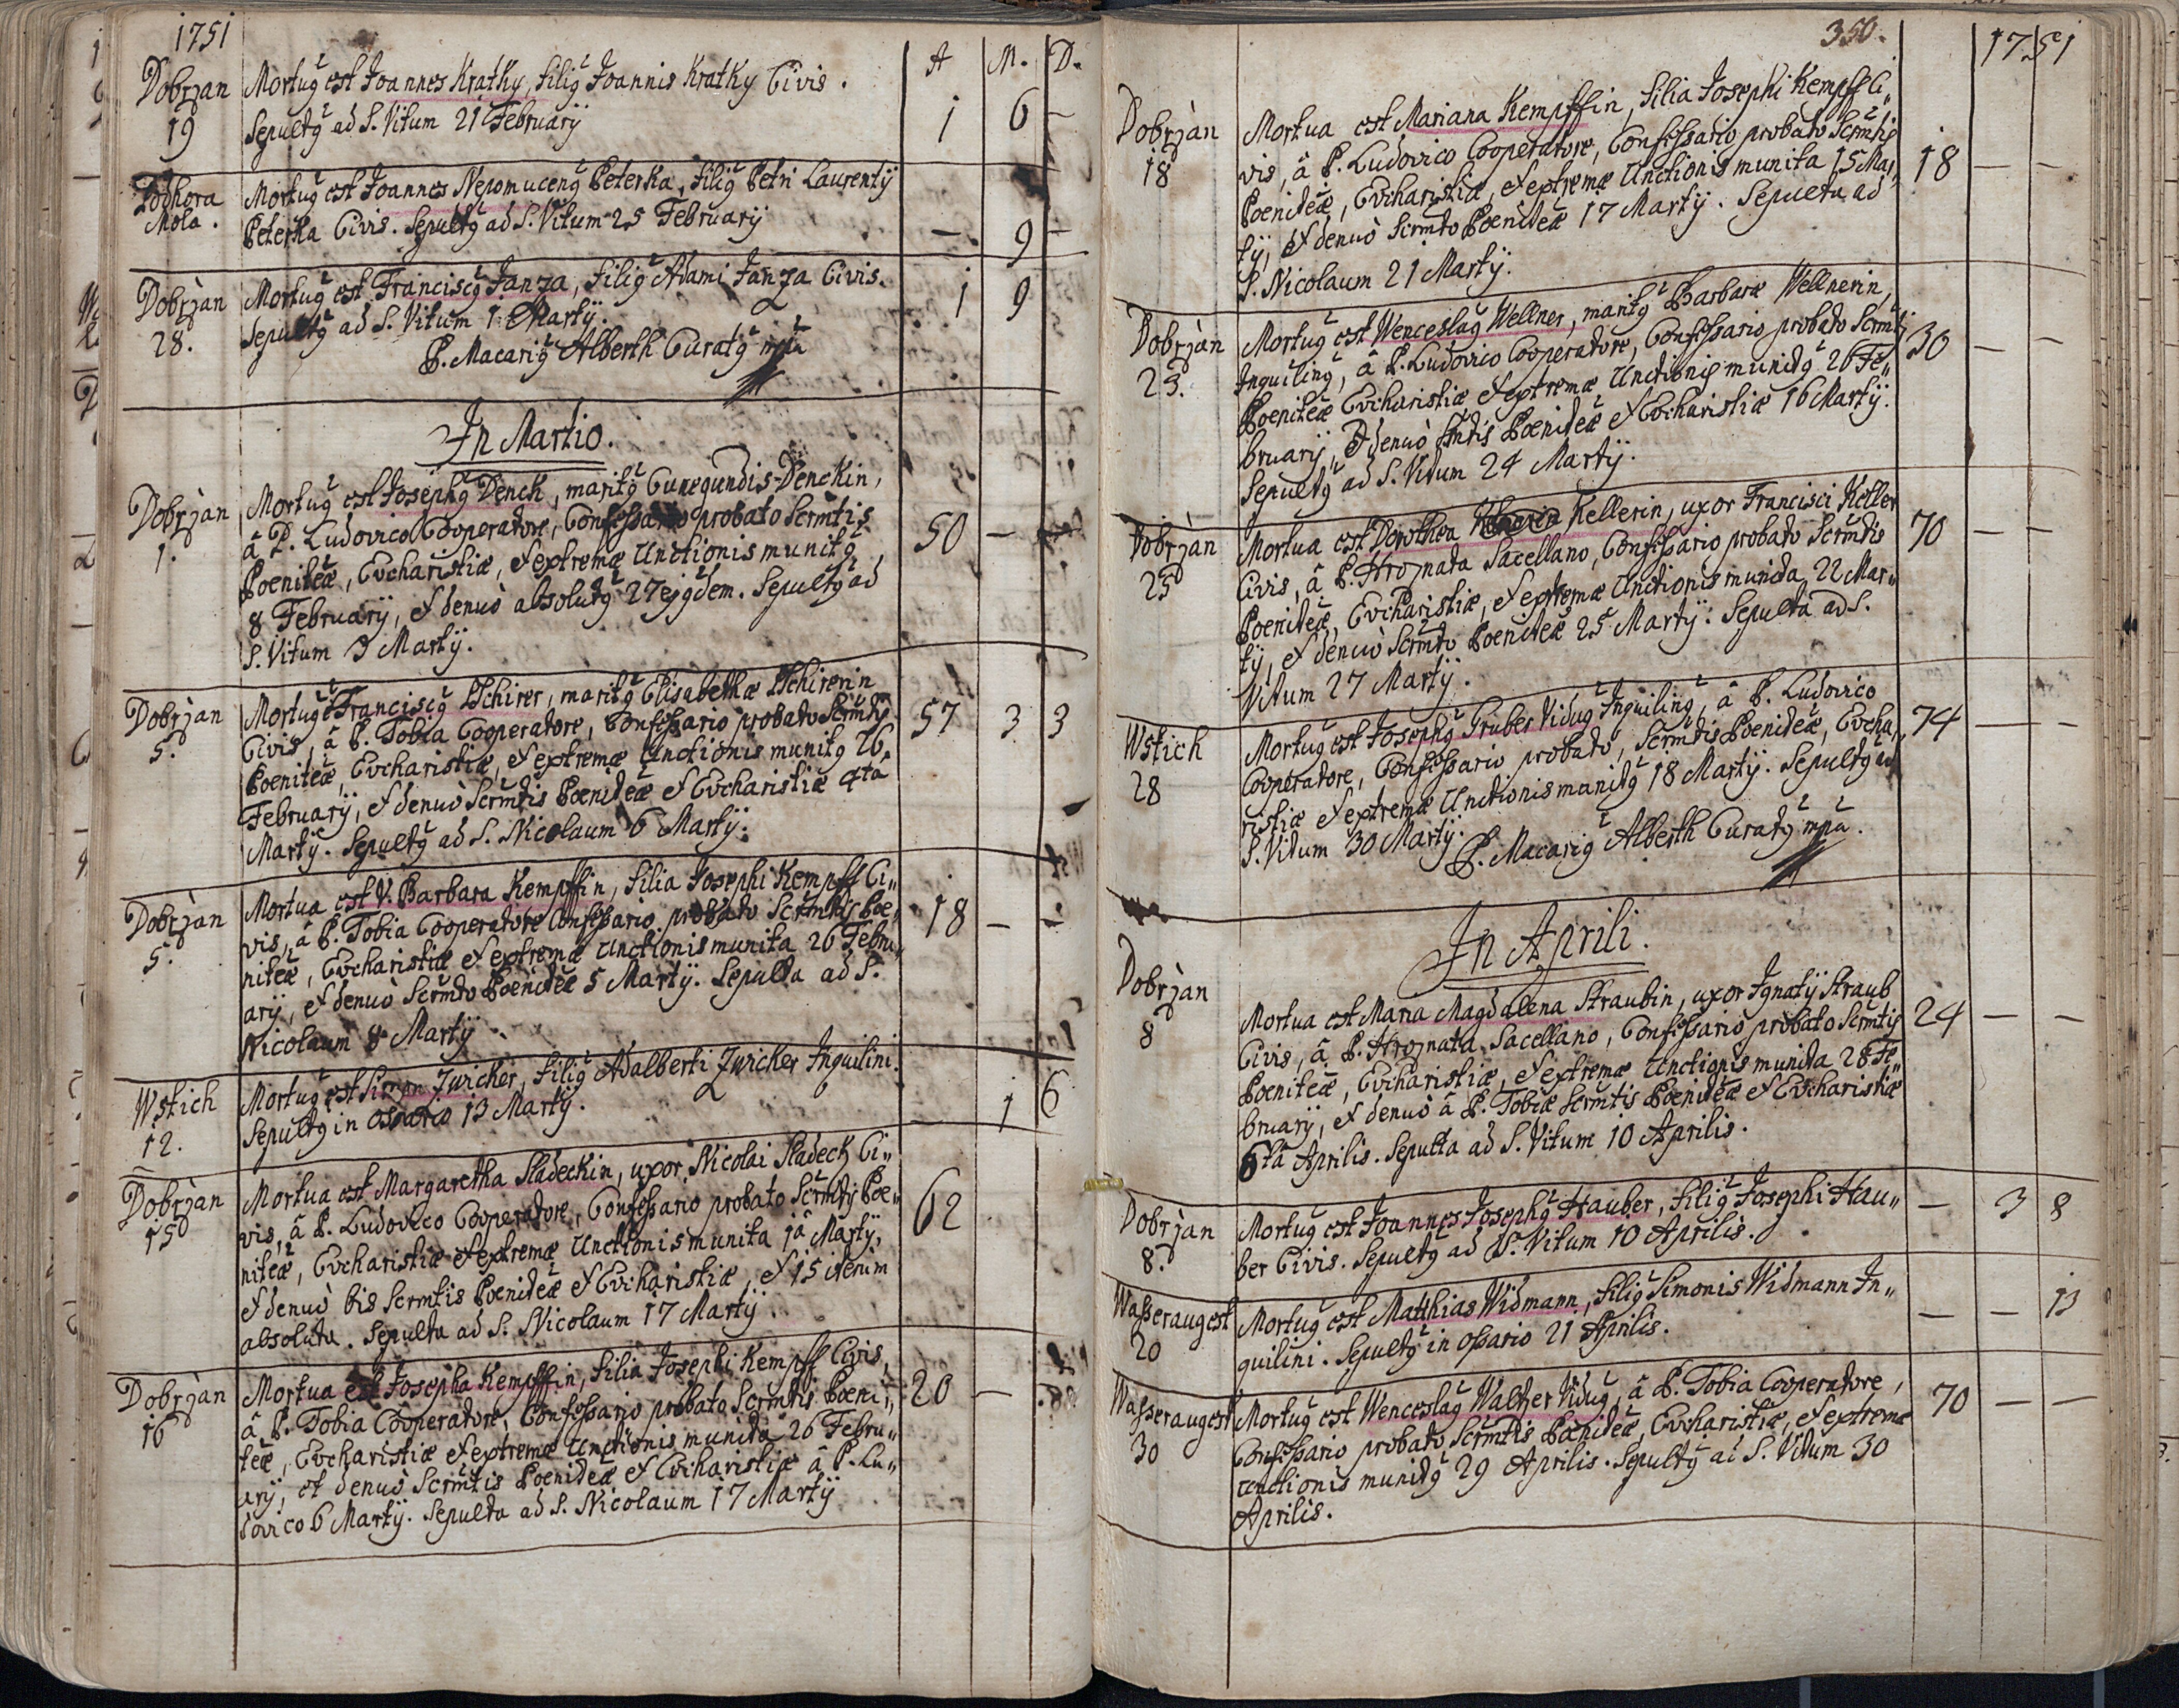 1751
A M. D.
Dobrzan Mortuq̃ est Joannes Kratky, filiq̃ Joannis Kratky Civis.
19 Sepultq̃ ad S. Vitum 21 Februarÿ 1 6 —
Podhora Mortuq̃ est Joannes Nepomucenq̃ Peterka, filiq̃ Petri Laurentÿ
Mola. Peterka Civis. Sepultq̃ ad S. Vitum 25 Februarÿ — 9 —
Dobrzan Mortuq̃ est Franciscq̃ Janza, filiq̃ Adami Janza Civis. 1 9
28. Sepultq̃ ad S. Vitum 1 Martÿ.
P. Macariq̃ Alberth Curatq̃ mpa
In Martio.
Dobrzan Mortuq̃ est Josephq̃ Denck, maritq̃ Cunegundis Denckin,
1. â P. Ludovico Cooperatore, Confessario probato Scrmtis 50 —
Poeniteæ, Evcharistiæ, et extremæ Unctionis munitq̃
8 Februarÿ, et denuò absolutq̃ 27 ejq̃dem. Sepultq̃ ad
S. Vitum 3 Martÿ.
Dobrzan Mortuq̃ Franciscq̃ Tschirer, maritq̃ Elisabethæ Tschirerin
5. Civis, â P. Tobia Cooperatore, Confessario probato Scrmtis 57 3 3
Poeniteæ Evcharistiæ, et extremæ Unctionis munitq̃ 26
Februarÿ, et denuò Scrmtis Poeniteæ et Evcharistiæ 4ta
Martÿ. Sepultq̃ ad S. Nicolaum 6 Martÿ.
Dobrzan Mortua est V. Barbara Kempffin, filia Josephi Kempff Ci„
5. vis, â P. Tobia Cooperatore Confessario probato Scrmtis Poe„ 18 — —
niteæ, Evcharistiæ et extremæ Unctionis munita 26 Febru„
arÿ, et denuò Scrmto Poeniteæ 5 Martÿ. Sepulta ad S.
Nicolaum 8 Martÿ.
Wstich Mortuq̃ est Simon Zwicker, filiq̃ Adalberti Zwicker Inquilini.
12. Sepultq̃ in ossario 13 Martÿ. — 1 6
Dobrzan Mortua est Margaretha Sladeckin, uxor Nicolai Sladeck Ci„
15 vis, â P. Ludovico Cooperatore, Confessario probato Scrmtis Poe„ 62
niteæ, Evcharistiæ et extremæ Unctionis munita 1â Martÿ,
et denuò bis Scrmtis Poeniteæ et Evcharistiæ, et 15 iterum
absoluta. Sepulta ad S. Nicolaum 17 Martÿ.
Dobrzan Mortua est Josepha Kempffin, filia Josephi Kempff Civis,
16 â P. Tobia Cooperatore, Confessario probato Scrmtis Poeni„ 20 —
teæ, Evcharistiæ et extremæ Unctionis munita 26 Febru„
arÿ, et denuò Scrmtis Poeniteæ et Evcharistiæ â P. Lu„
dovico 6 Martÿ. Sepulta ad S. Nicolaum 17 Martÿ
350.
1751
Dobrzàn Mortua est Mariana Kempffin, filia Josephi Kempff Ci„
18 vis, â P. Ludovico Cooperatore, Confessario probato Scrmtis 18 — —
Poeniteæ, Evcharistiæ, et extremæ Unctionis munita 15 Mar„
tÿ, et denuò Scrmto Poeniteæ 17 Martÿ. Sepulta ad
S. Nicolaum 21 Martÿ.
Dobrzàn Mortuq̃ est Wenceslaq̃ Wellner, maritq̃ Barbaræ Wellnerin,
23. Inquilinq̃, â P. Ludovico Cooperatore, Confessario probato Scrmtis 30 — —
Poeniteæ Evcharistiæ et extremæ Unctionis munitq̃ 26 Fe„
bruarÿ, et denuò Scmtis Poeniteæ et Evcharistiæ 16 Martÿ.
Sepultq̃ ad S. Vitum 24 Martÿ.
Dobrzàn Mortua est Dorothea Kellerin, uxor Francisci Keller
25 Civis, â P. Hroznata Sacellano, Confessario probato Scrmtis 70 — —
Poeniteæ, Evcharistiæ, et extremæ Unctionis munita 22 Mar„
tÿ, et denuò Scrmto Poeniteæ 25 Martÿ. Sepulta ad S.
Vitum 27 Martÿ.
Wstich Mortuq̃ est Josephq̃ Gruber Viduq̃ Inquilinq̃, â P. Ludovico
28 Cooperatore, Confessario probato, Scrmtis Poeniteæ, Evcha„ 74 — —
ristiæ et extremæ Unctionis munitq̃ 18 Martÿ. Sepultq̃ ad
S. Vitum 30 Martÿ.
P. Macariq̃ Alberth Curatq̃ mpa.
In Aprili.
Dobrzan Mortua est Maria Magdalena Straubin, uxor Ignatÿ Straub
8 Civis, â P. Hroznata Sacellano, Confessario probato Scrmtis 24 — —
Poeniteæ, Evcharistiæ, et extremæ Unctionis munita 28 Fe„
bruarÿ, et denuò â P. Tobiæ Scrmtis Poeniteæ et Evcharistiæ
6ta Aprilis. Sepulta ad S. Vitum 10 Aprilis.
Dobrzan Mortuq̃ est Joannes Josephq̃ Hauber, filiq̃ Josephi Hau„ — 3 8
8. ber Civis. Sepultq̃ ad S. Vitum 10 Aprilis.
Wasseraugest Mortuq̃ est Matthias Widmann, filiq̃ Simonis Widmann In„ — — 13
20 quilini. Sepultq̃ in ossario 21 Aprilis.
Wasseraugest Mortuq̃ est Wenceslaq̃ Walter Viduq̃, â P. Tobia Cooperatore, 70 — —
30 Confessario probato, Scrmtis Poeniteæ, Evcharistiæ, et extremæ
Unctionis munitq̃ 29 Aprilis. Sepultq̃ ad S. Vitum 30
Aprilis.